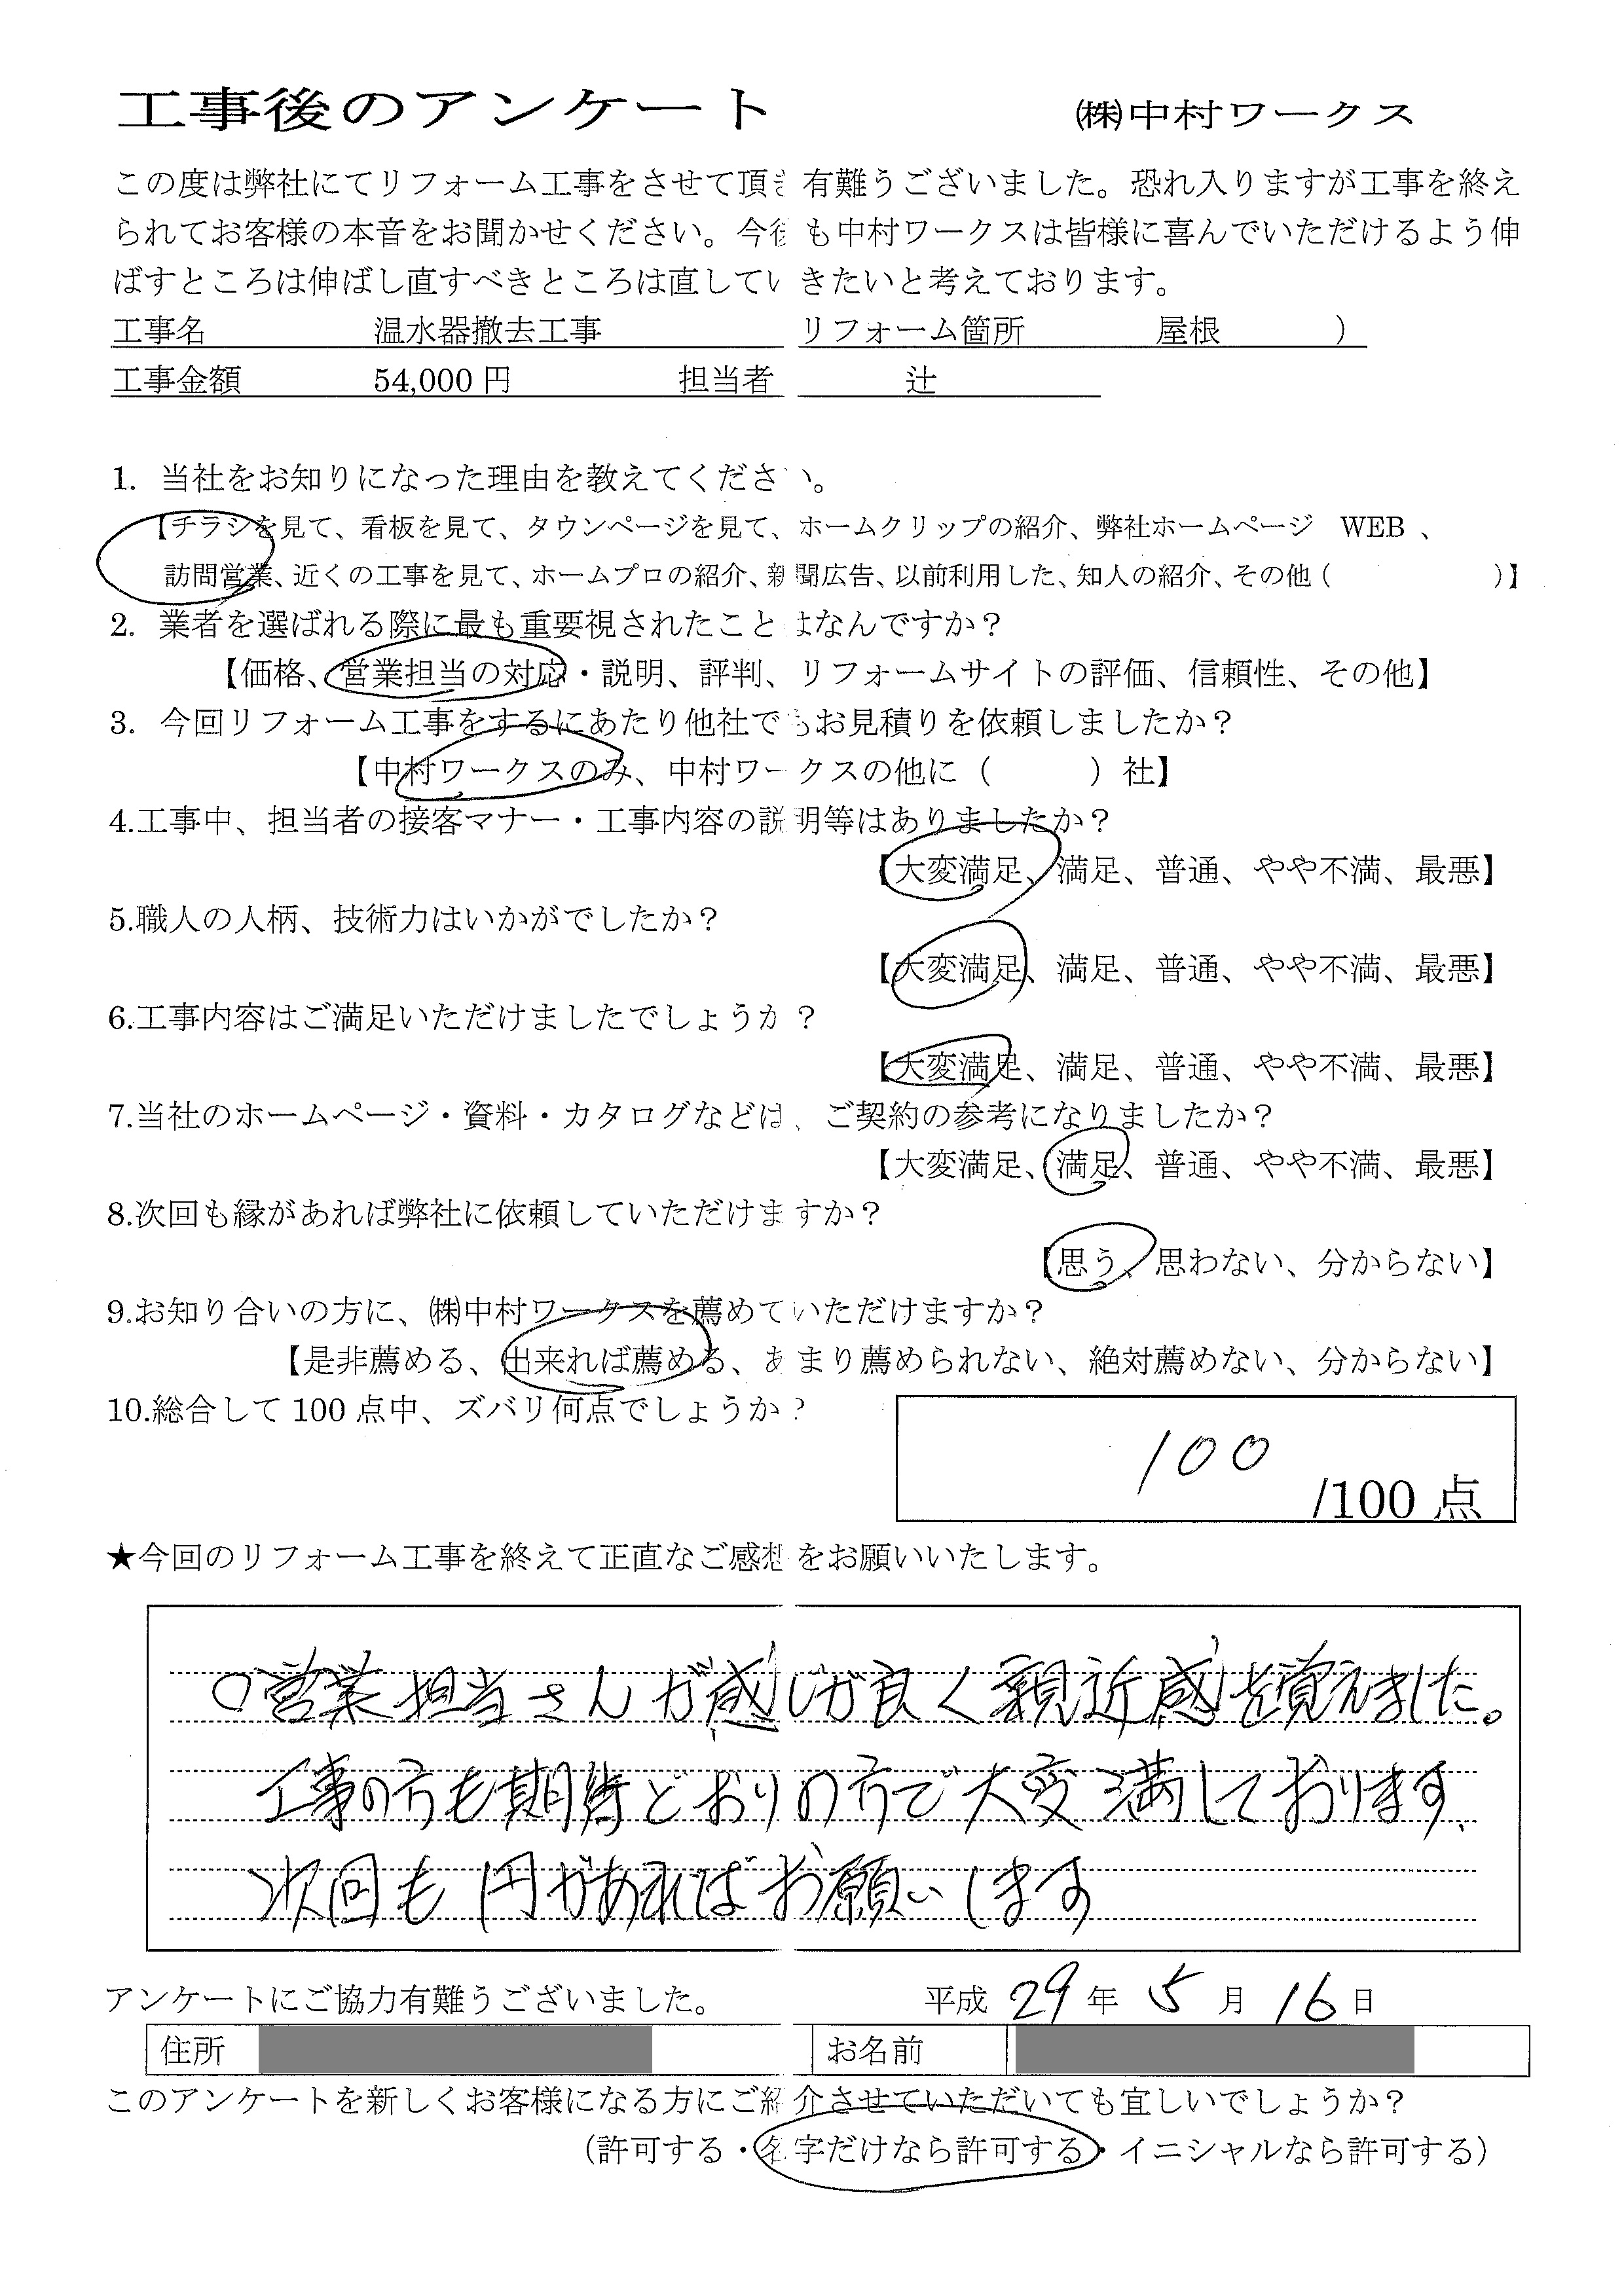 工事後のアンケート ㈱中村ワークス
この度は弊社にてリフォーム工事をさせて頂き有難うございました。恐れ入りますが工事を終え
られてお客様の本音をお聞かせください。今後も中村ワークスは皆様に喜んでいただけるよう伸
ばすところは伸ばし直すべきところは直していきたいと考えております。
工事名 温水器撤去工事 リフォーム箇所 屋根 )
工事金額 54,000円 担当者 辻
1. 当社をお知りになった理由を教えてください。
【チラシを見て、看板を見て、タウンページを見て、ホームクリップの紹介、弊社ホームページ WEB 、
訪問営業、近くの工事を見て、ホームプロの紹介、新聞広告、以前利用した、知人の紹介、その他 ( )】
2. 業者を選ばれる際に最も重要視されたことはなんですか？
【価格、営業担当の対応・説明、評判、リフォームサイトの評価、信頼性、その他】
3. 今回リフォーム工事をするにあたり他社でもお見積りを依頼しましたか？
【中村ワークスのみ、中村ワークスの他に ( ) 社】
4.工事中、担当者の接客マナー・工事内容の説明等はありましたか？
【大変満足、満足、普通、やや不満、最悪】
5.職人の人柄、技術力はいかがでしたか？
【大変満足、満足、普通、やや不満、最悪】
6.工事内容はご満足いただけましたでしょうか？
【大変満足、満足、普通、やや不満、最悪】
7.当社のホームページ・資料・カタログなどは、ご契約の参考になりましたか？
【大変満足、満足、普通、やや不満、最悪】
8.次回も縁があれば弊社に依頼していただけますか？
【思う、思わない、分からない】
9.お知り合いの方に、㈱中村ワークスを薦めていただけますか？
【是非薦める、出来れば薦める、あまり薦められない、絶対薦めない、分からない】
10.総合して 100 点中、ズバリ何点でしょうか？
100
/100 点
★今回のリフォーム工事を終えて正直なご感想をお願いいたします。
○営業担当さんが感じが良く親近感を覚えました。
工事の方も期待どおりの方で大変満しております。
次回も円があればお願いします
アンケートにご協力有難うございました。 平成 29 年 5 月 16 日
住所 お名前
このアンケートを新しくお客様になる方にご紹介させていただいても宜しいでしょうか？
(許可する・名字だけなら許可する・イニシャルなら許可する)